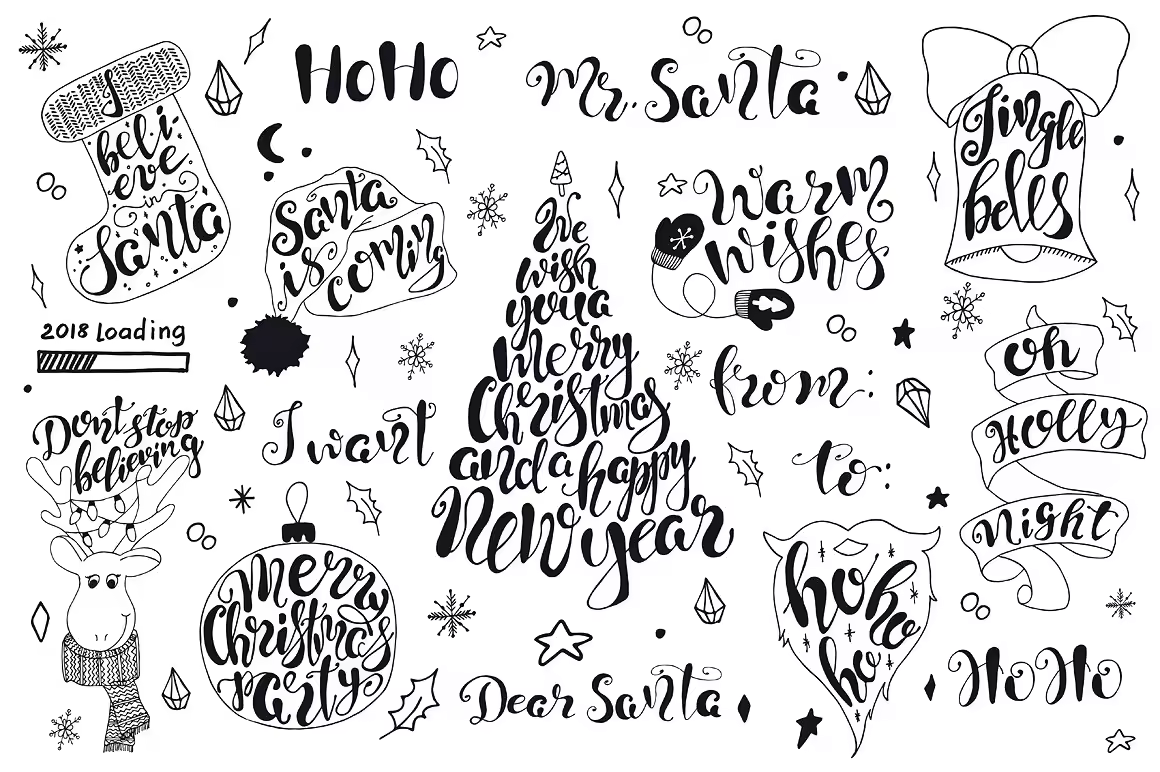 I
beli-
eve
in
Santa
HoHo
Mr. Santa
Jingle
bells
Santa
is coming
We
wish
you a
Merry
Christmas
and a happy
New year
Warm
wishes
2018 Loading
Dont stop
believing
I want
from:
to:
oh
Holly
Night
Merry
Christmas
party
ho ho
ho
Dear Santa
HoHo